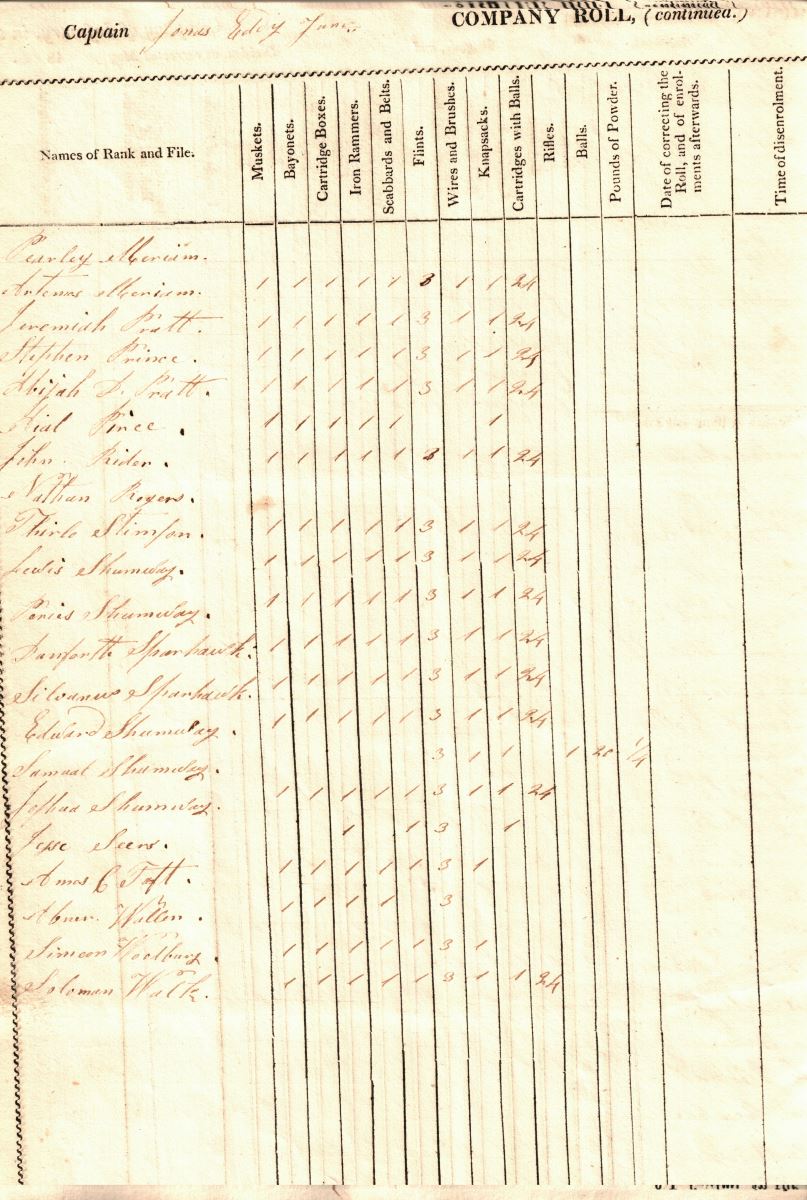 COMPANY ROLL, (continued.)
Captain Jonas Eddy Junr.
Names of Rank and File.
Muskets.
Bayonets.
Cartridge Boxes.
Iron Rammers.
Scabbards and Belts.
Flints.
Wires and Brushes.
Knapsacks.
Cartridges with Balls.
Rifles.
Balls.
Pounds of Powder.
Date of correcting the
Roll, and of enrol-
ments afterwards.
Time of disenrolment.
Pearley Meriam.
Artemas Meriam. 1 1 1 1 1 3 1 1 24
Jeremiah Pratt. 1 1 1 1 1 3 1 1 24
Stephen Prince. 1 1 1 1 1 3 1 1 24
Abijah D. Pratt. 1 1 1 1 1 3 1 1 24
Rial Pirce. 1 1 1 1 1 1
John Rider. 1 1 1 1 1 3 1 1 24
Nathan Rogers.
Stimson. 1 1 1 1 1 3 1 1 24
Lewis Shumway. 1 1 1 1 1 3 1 1 24
Shumway. 1 1 1 1 1 3 1 1 24
Danforth Sparhawk. 1 1 1 1 1 3 1 1 24
Silvanus Sparhawk. 1 1 1 1 1 3 1 1 24
Edward Shumway. 1 1 1 1 1 3 1 1 24
Samuel Shumway. 3 1 1 1 20 1/4
Joshua Shumway. 1 1 1 1 1 3 1 1 24
Jesse Seers. 1 1 3 1
Amos C Taft. 1 1 1 1 1 3 1
Abner 1 1 1 1 3
Simeon Woodbury. 1 1 1 1 1 3 1
Soloman Walk. 1 1 1 1 1 3 1 1 24